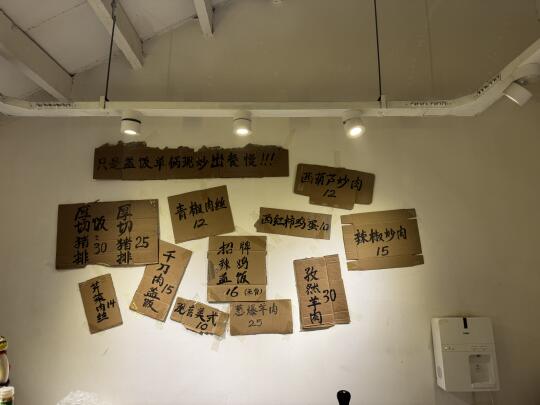 只是盖饭单俩现炒出餐慢!!!
西葫芦炒肉
12
青椒肉丝
12
西红柿鸡蛋10
辣椒炒肉
15
厚切猪排饭:30
厚切猪排25
招牌
辣鸡
盖饭
16
千刀肉盖饭15
孜然羊肉30
肉丝14
美式
10
葱爆羊肉
25